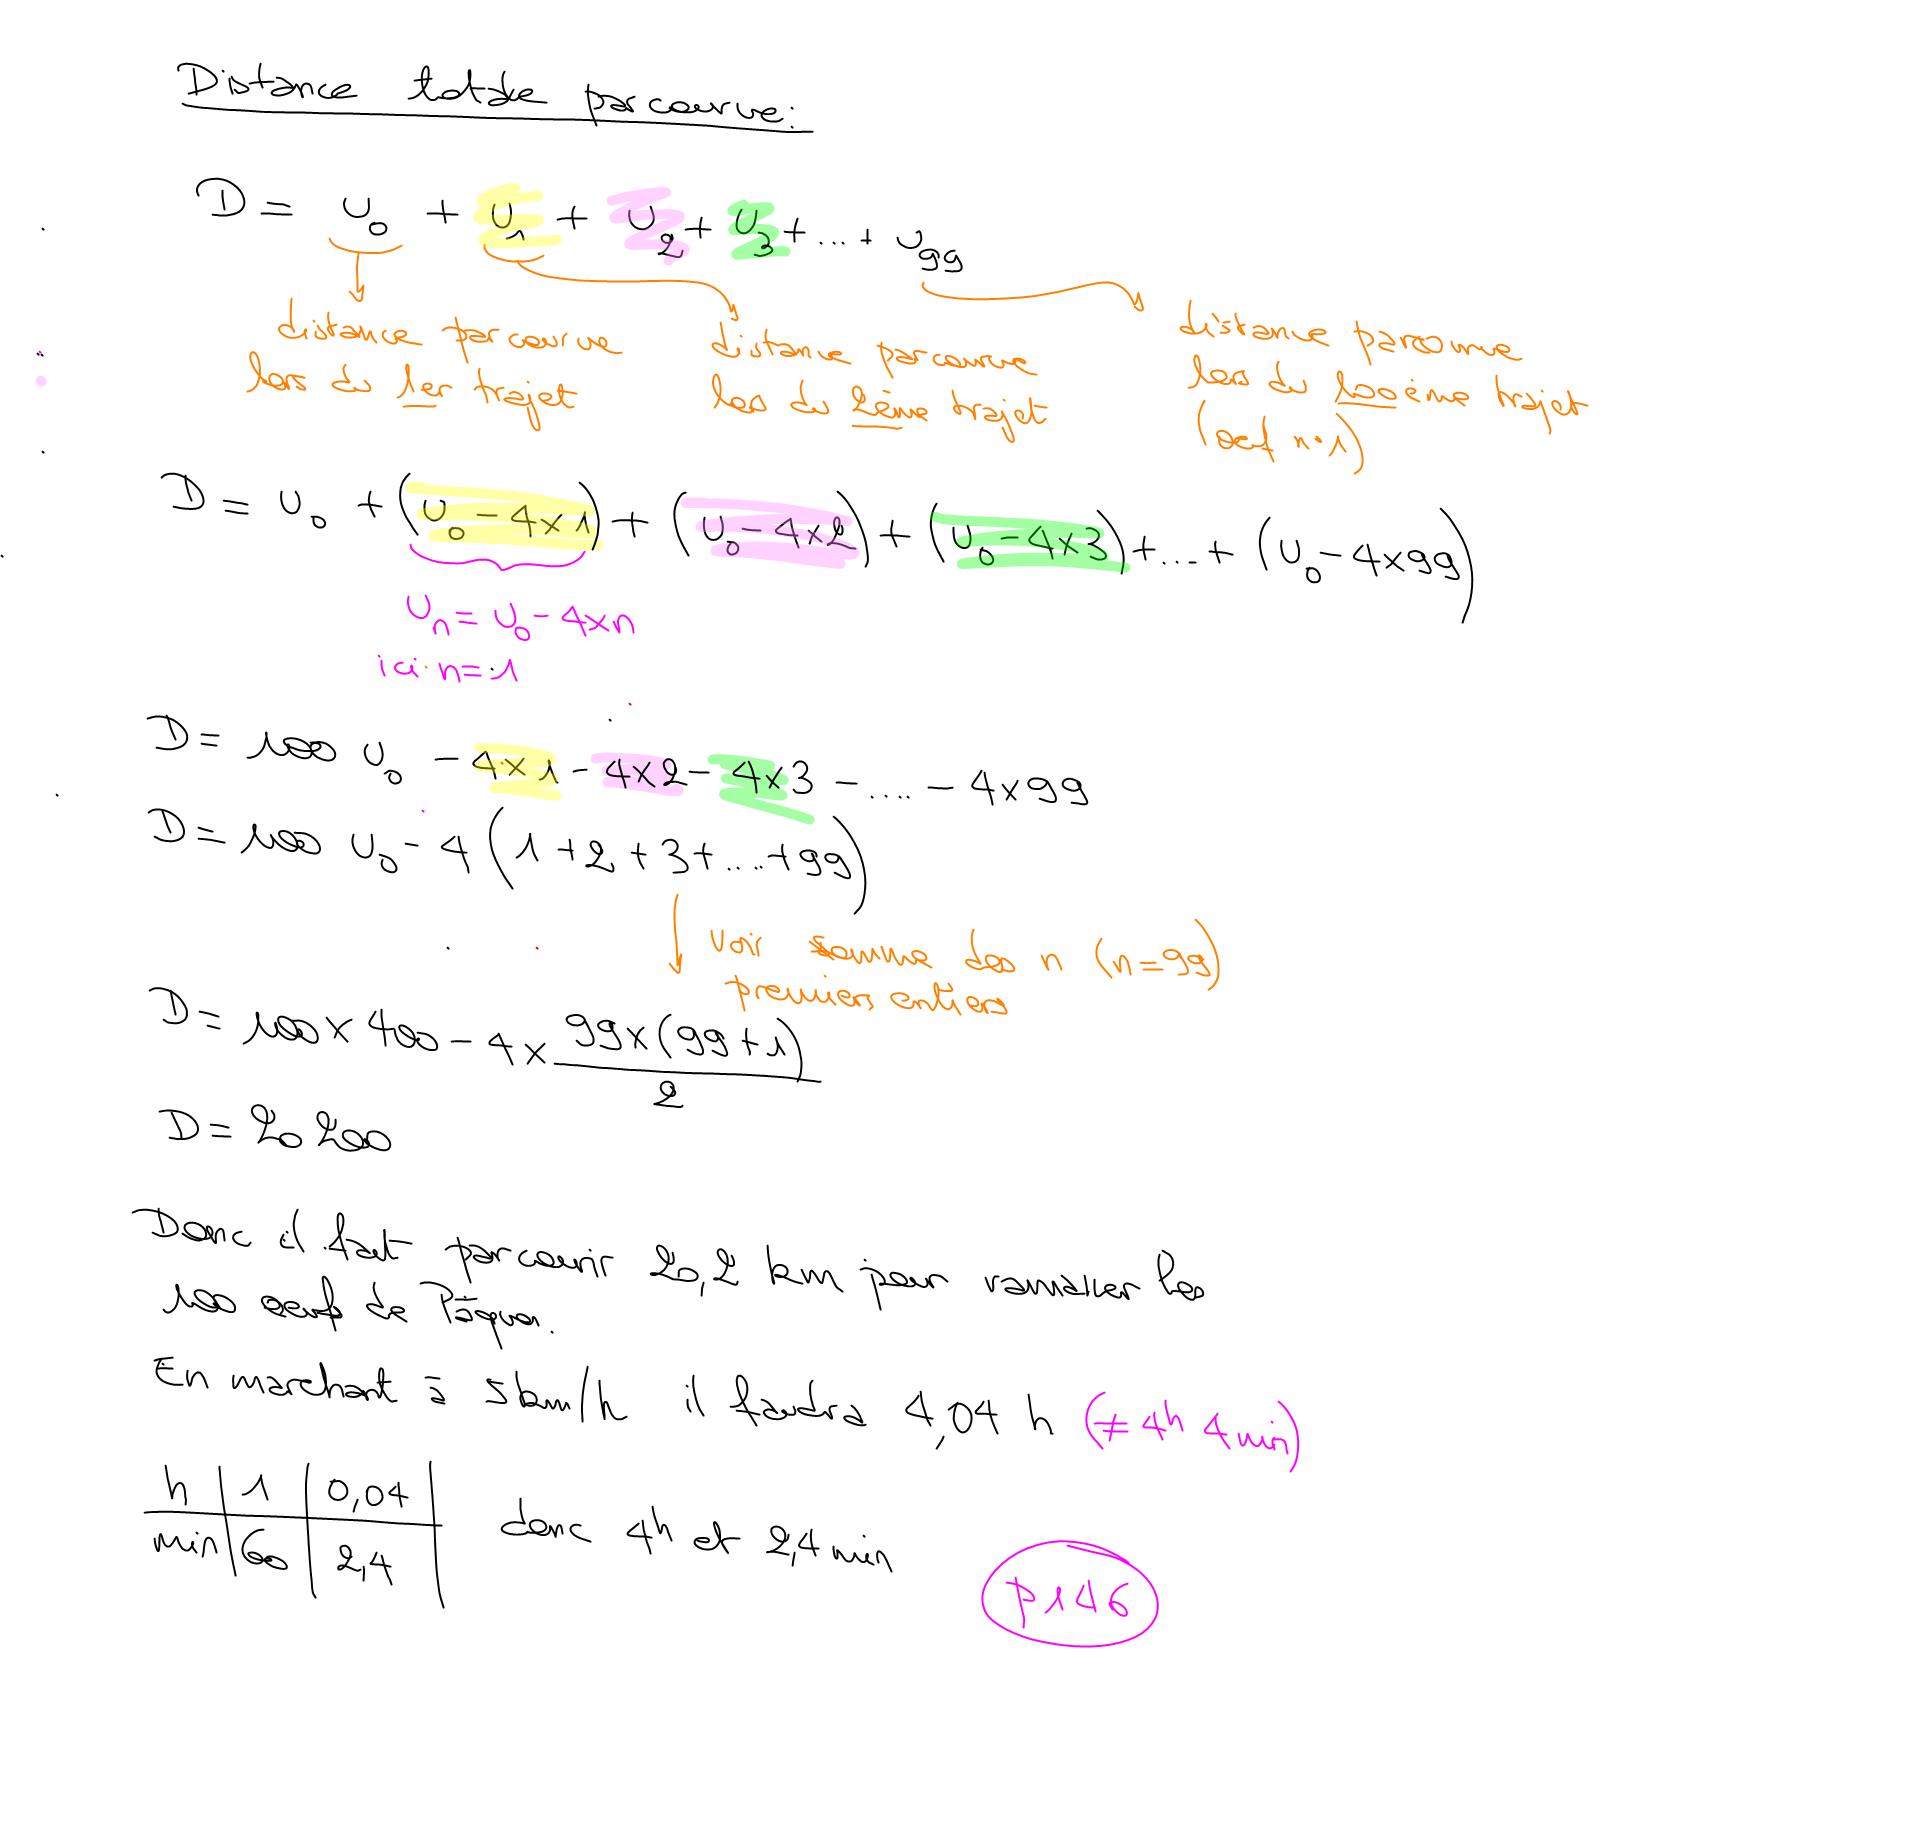 Distance totale parcourue:
D = U₀ + U₁ + U₂ + U₃ + ... + U₉₉
distance parcourue
lors du 1er trajet
distance parcourue
lors du 2ème trajet
distance parcourue
lors du 100ème trajet
(oeuf n°1)
D = U₀ + (U₀ - 4×1) + (U₀ - 4×2) + (U₀ - 4×3) + ... + (U₀ - 4×99)
Uₙ = U₀ - 4×n
ici n = 1
D = 100 U₀ - 4×1 - 4×2 - 4×3 - .... - 4×99
D = 100 U₀ - 4 (1 + 2 + 3 + .... + 99)
voir somme des n (n=99)
premiers entiers
D = 100 × 400 - 4 × 99×(99+1)/2
D = 20 200
Donc il fait parcourir 20,2 km pour ramasser les
100 oeufs de Pâques.
En marchant à 5km/h il faudra 4,04 h (≠ 4h 4 min)
h | 1 | 0,04
min | 60 | 2,4
donc 4h et 2,4 min
p146